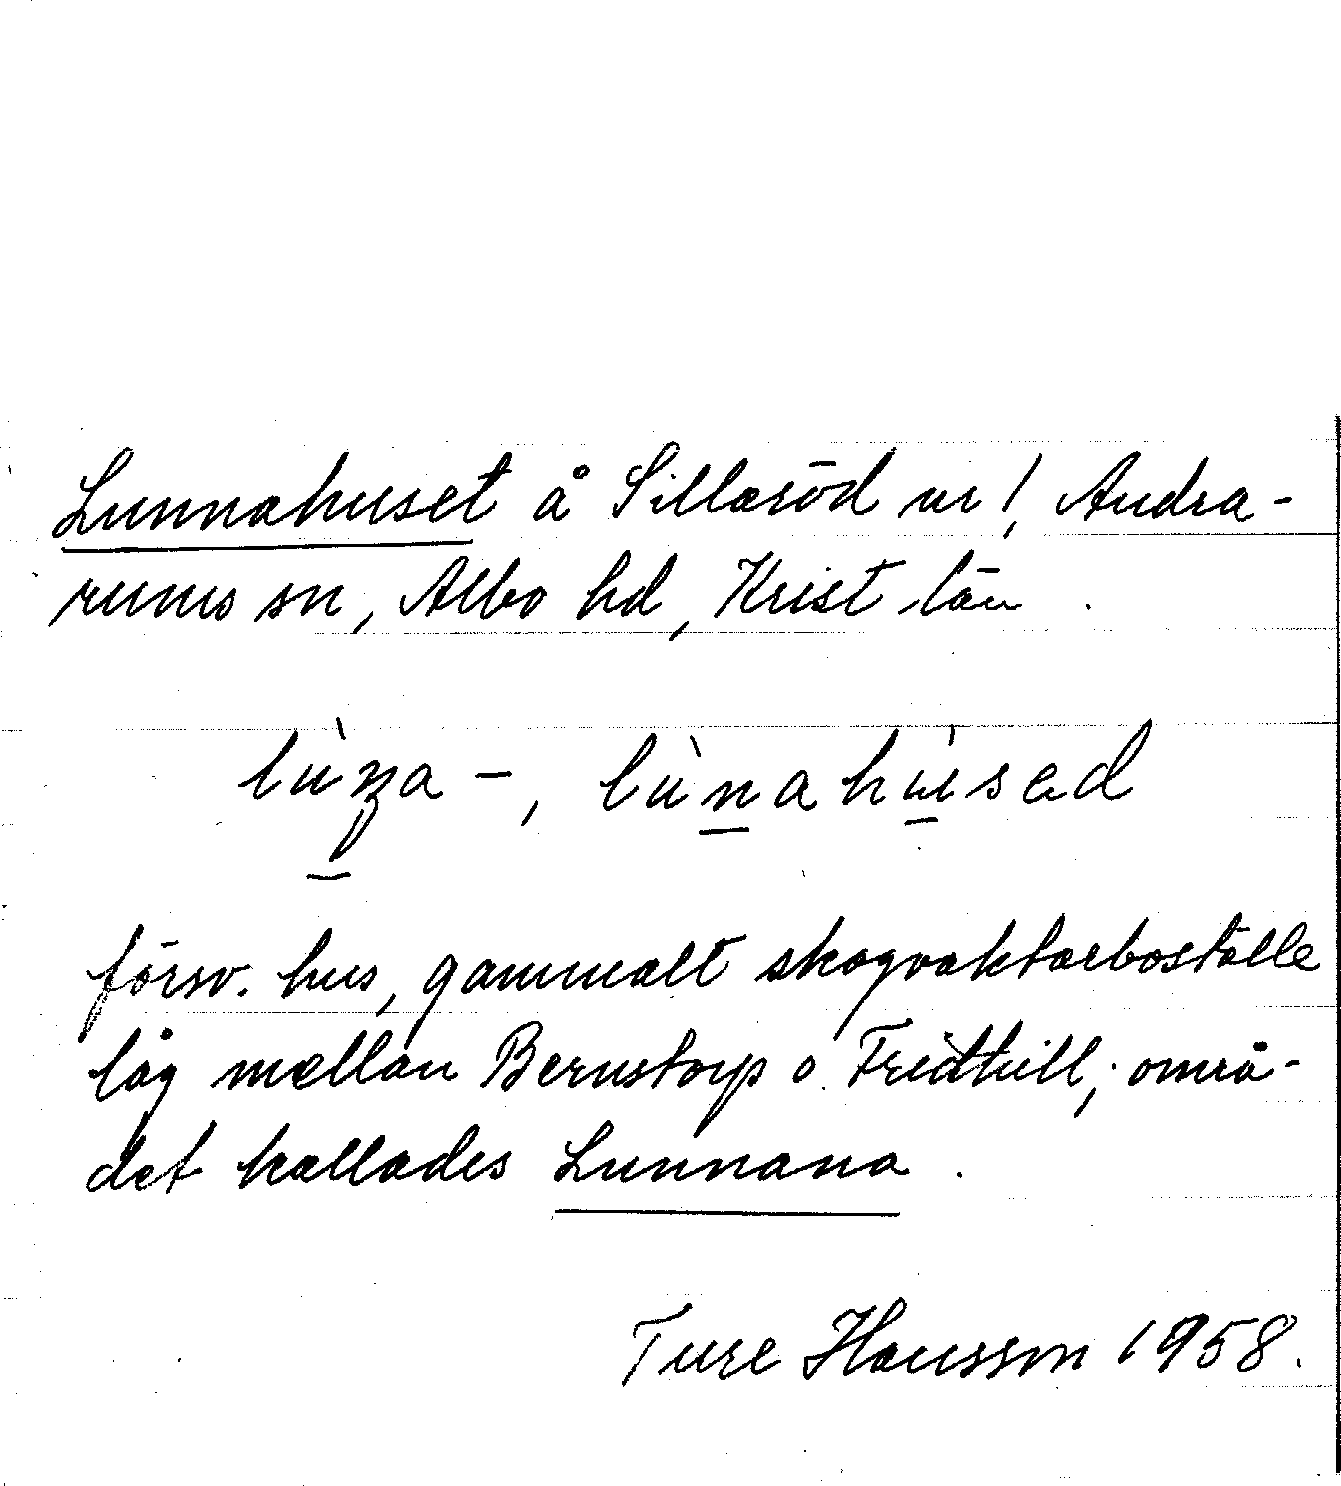 Lunnahuset å Sillaröd nr 1, Andra-
rums sn, Albo hd, Krist län.
försv. hus, gammalt skogvaktarboställe
låg mellan Bernstorp o. Fridhill; områ-
det kallades Lunnana.
Ture Hansson 1958.